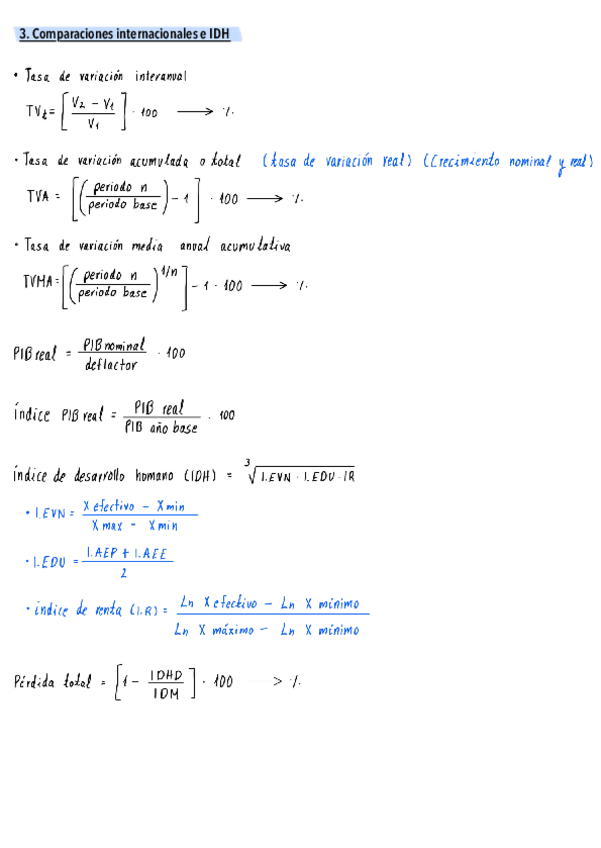 3. Comparaciones internacionales e IDH
• Tasa de variación interanual
TVt = [ (V2 - V1) / V1 ] · 100 → %
• Tasa de variación acumulada o total (tasa de variación real) (Crecimiento nominal y real)
TVA = [ ( periodo n / periodo base ) - 1 ] · 100 → %
• Tasa de variación media anual acumulativa
TVMA = [ ( periodo n / periodo base )^1/n ] - 1 · 100 → %
PIB real = PIB nominal / deflactor · 100
índice PIB real = PIB real / PIB año base · 100
índice de desarrollo humano (IDH) = ³√ I.EVN · I.EDU · IR
• I.EVN = X efectivo - X min / X max - X min
• I.EDU = I.AEP + I.AEE / 2
• índice de renta (I.R) = Ln X efectivo - Ln X mínimo / Ln X máximo - Ln X mínimo
Pérdida total = [ 1 - IDHD / IDM ] · 100 → %